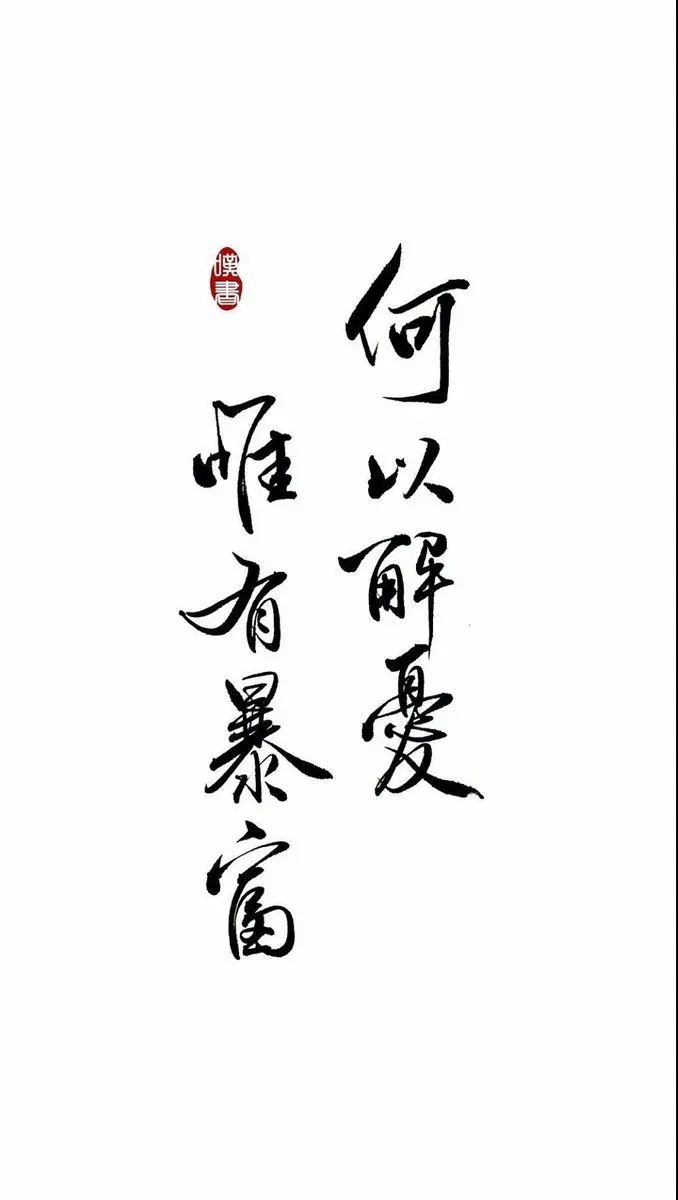 何以解憂
惟有暴富
嘆書